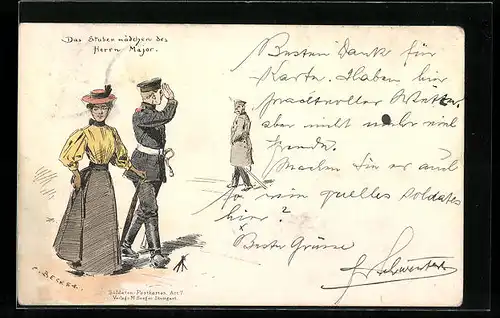 Das Stubenmädchen des
Herrn Major.
Besten Dank für
Karte. Haben hier
prachtvolles Wetter,
aber nicht mehr viel
Freude.
Machen Sie es auch
so wie
hier?
Beste Grüsse
C. BECKER.
Soldaten-Postkarten. Art. 7.
Verlag: H. Seeger Stuttgart.